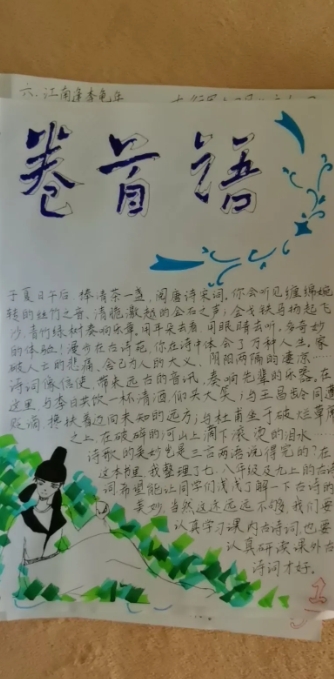 六、江南逢李龟年
卷首语
于夏日午后,捧清茶一盏,阅唐诗宋词。你会听见缠绵婉
转的丝竹之音、清脆激越的金石之声,金戈铁马扬起飞
沙,青竹绿树奏响乐章。用耳朵去看,用眼睛去听,多奇妙
的体验!漫步在古诗苑,你在诗中体会了万种人生,家
破人亡的悲痛,舍己为人的大义,阴阳两隔的凄凉
诗词像信使,带来远古的音讯,奏响先辈的乐器。在
这里,与李白共饮一杯清酒,仰头大笑;与王昌龄同遭
贬谪,搀扶着迈向未知的远方;与杜甫坐于破烂草席
之上,在破碎的河山上滴下滚烫的泪水
诗歌的美妙岂是三言两语说得完的?在
这本里,我整理了七、八年级书上的古诗
词,希望能让同学们浅浅了解一下古诗的
美妙,当然这还远远不够,我们要
认真学习课内古诗词,也要
认真研读课外古
诗词才好。
1